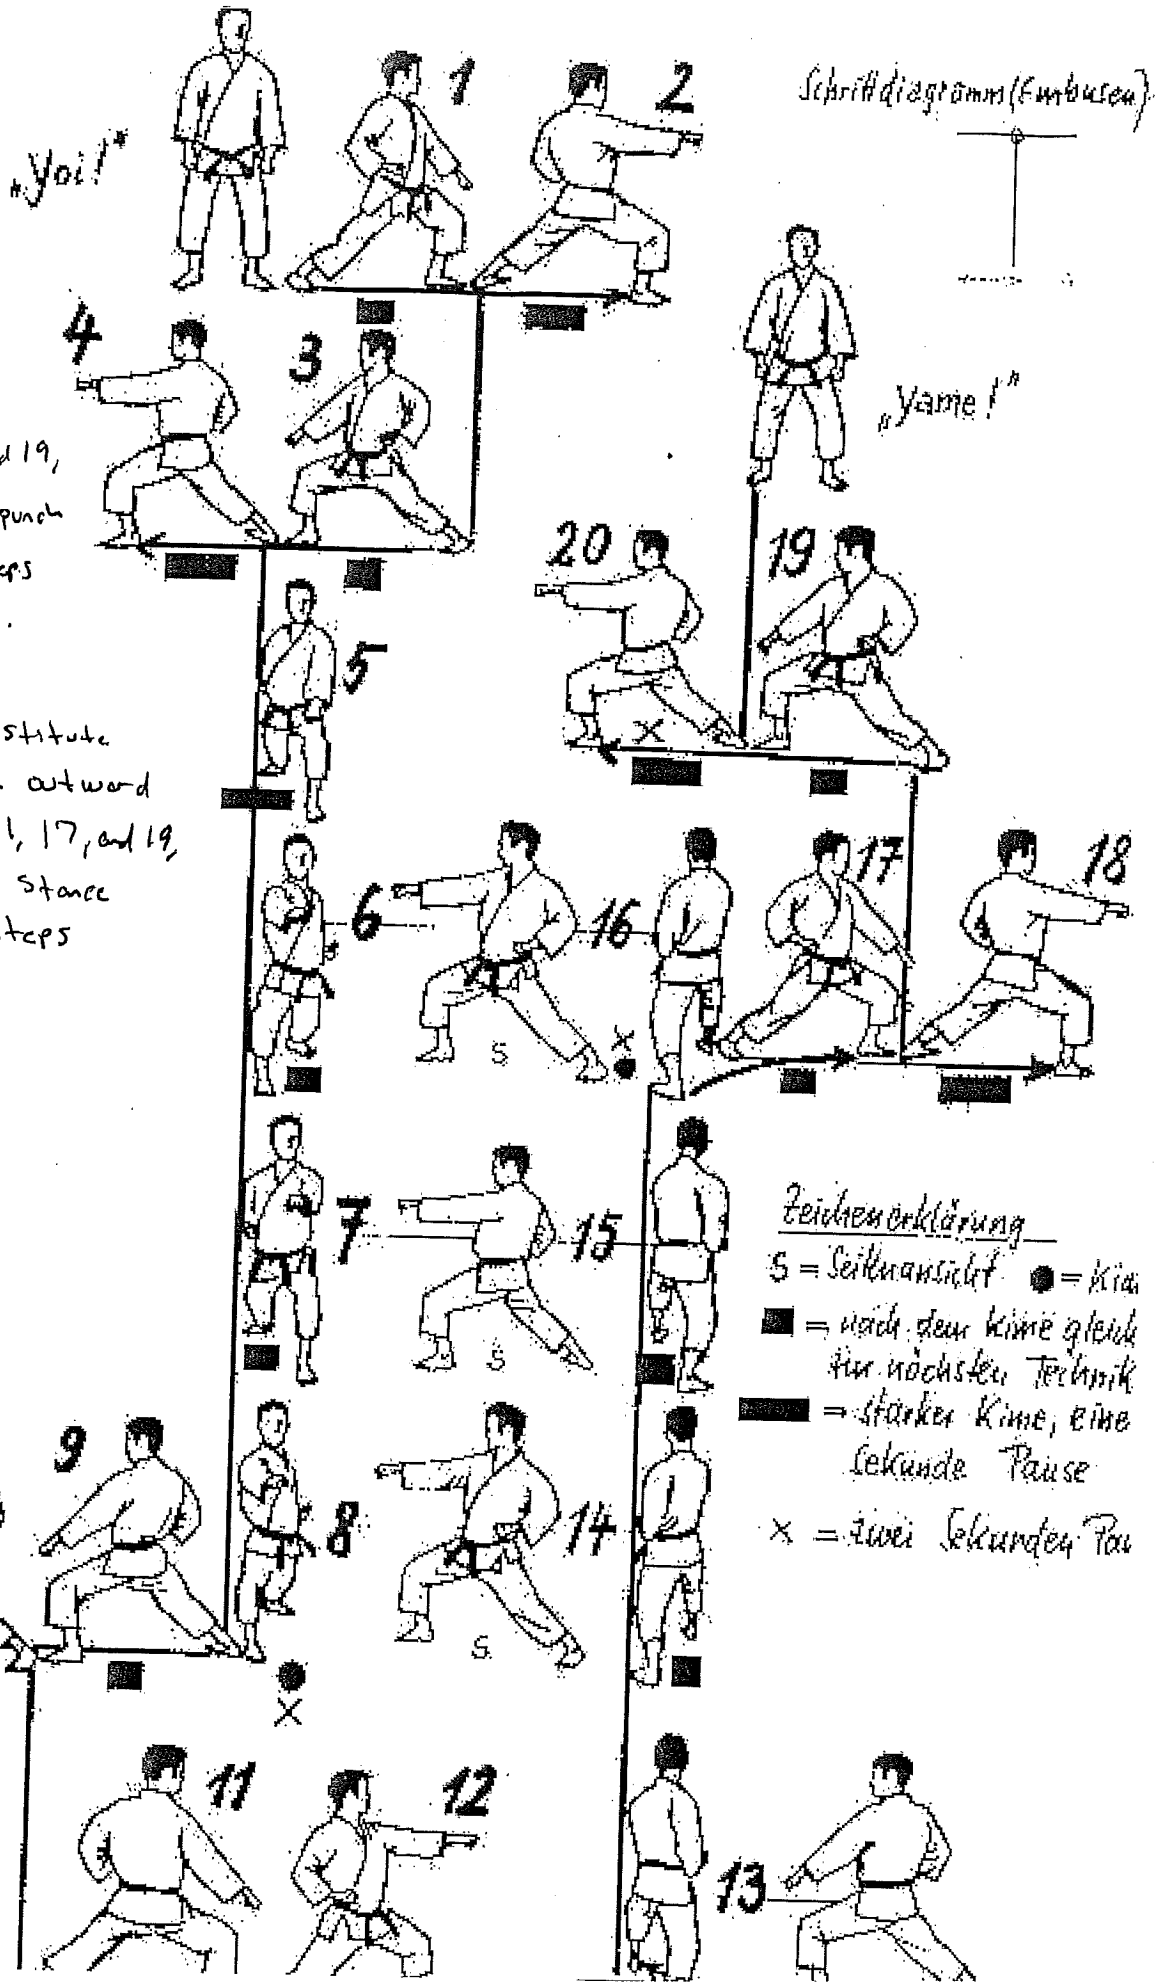 1
2
Schrittdiagramm (Embusen)
„Yoi!"
4
3
„Yame!"
d 19,
punch
eps
.
20
19
5
stitute
. outward
1, 17, and 19,
stance
teps
6
16
17
18
7
15
Zeichenerklärung
S
S = Seitenansicht ● = Kiai
■ = nach dem Kime gleich
zur nächsten Technik
S
▬ = starker Kime, eine
Sekunde Pause
9
8
14
X = zwei Sekunden Pau
S
11
12
13